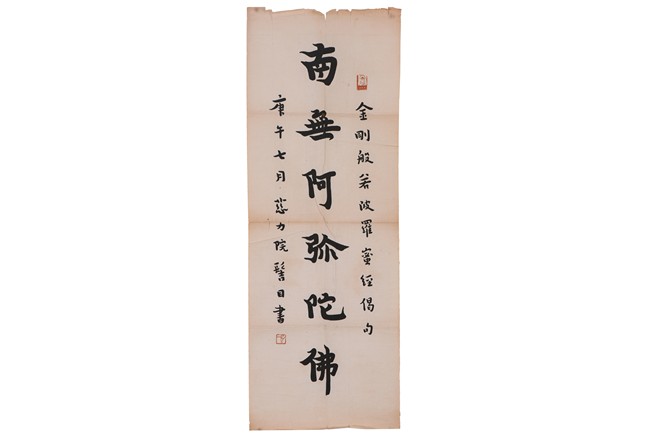 金剛般若波羅蜜經偈句
南無阿弥陀佛
庚午七月慈力院髻目書